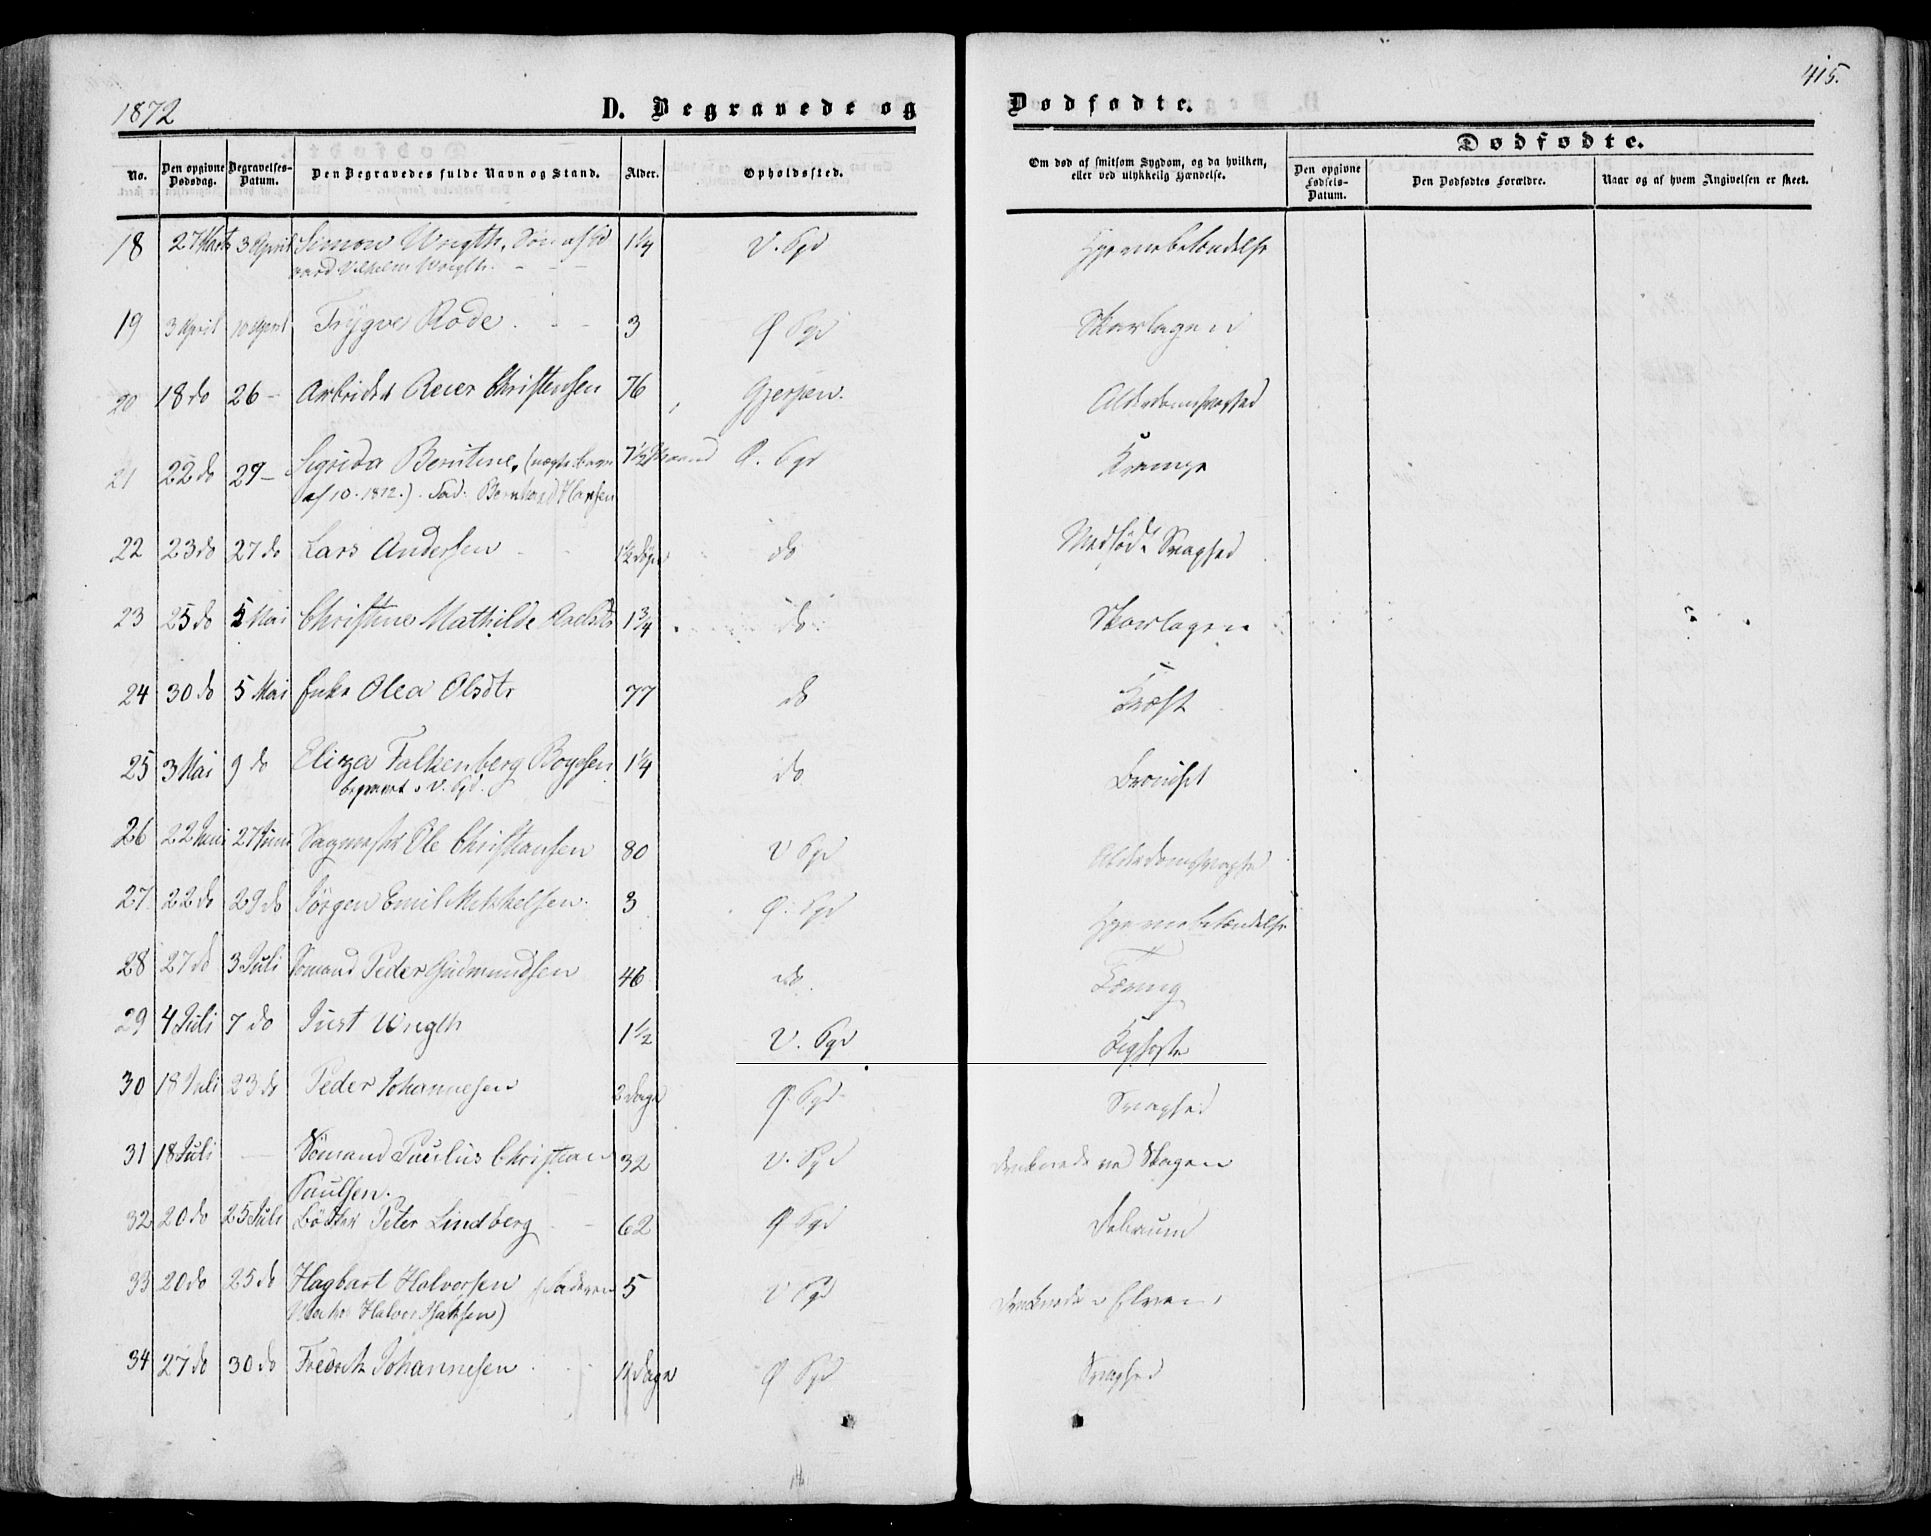 415.
1872
D. Begravede og Dødfødte.
Dødfødte.
No.
Den opgivne Dødsdag.
Begravelses-Datum.
Den Begravedes fulde Navn og Stand.
Alder.
Opholdssted.
Om død af smitsom Sygdom, og da hvilken, eller ved ulykkelig Hændelse.
Den opgivne Fødsels-Datum.
Den Dødfødtes Forældre.
Naar og af hvem Angivelsen er skeet.
18 27 Marts 3 April Simon Wrigth, Søn af Ed 1¼ V. Pgd Hjernebetændelse
vard Vilhelm Wrigth.
19 3 April 10 April Trygve Rode 3 Ø Pgd Skarlagen
20 18 do 26 - Arbeider Reier Christensen 76 Gjerpen. Alderdomssvaghed
21 22 do 29 - Sigrida Berntine, 7½ Ø. Pgd Krampe
af 10. 1872.). Fad: Bernhard Hansen
22 23 do 27 do Lars Andersen 1½ døgn do Medfødt Svaghed
23 25 do 5 Mai Christine Mathilde 1¾ do Skarlagen
24 30 do 5 Mai Enke Olea Olsdtr 77 do Kræft
25 3 Mai 9 do Eliza Falkenberg Boyesen 1¼ do Bronchit
begravet V. Pgd.
26 22 Juni 27 Juni Sagmester Ole Christiansen 80 V Pgd Alderdomssvaghed
27 22 do 29 do Jörgen Emil Mikkelsen. 3 Ø. Pgd Hjernebetændelse
28 27 do 3 Juli Sömand Peder Gudmundsen 46 do. Tæring
29 4 Juli 7 do Just Wrigth 1½ V. Pgd Kighoste
30 18 Juli 23 do Peder Johannesen 2 Dage Ø. Pgd Svaghed
31 18 Juli - Sömand Paulus Christian 32 V. Pgd druknede ved Skagen
Paulsen.
32 20 do 25 Juli Bödker Peter Lindberg 62 Ø Pgd Delirium
33 20 do 25 do Hagbart Halvorsen (Faderen 5 V Pgd Druknede i Elven
Halvor Isaksen)
34 27 do 30 do Fredrik Johannesen 11 Dage Ø Pgd Svaghed